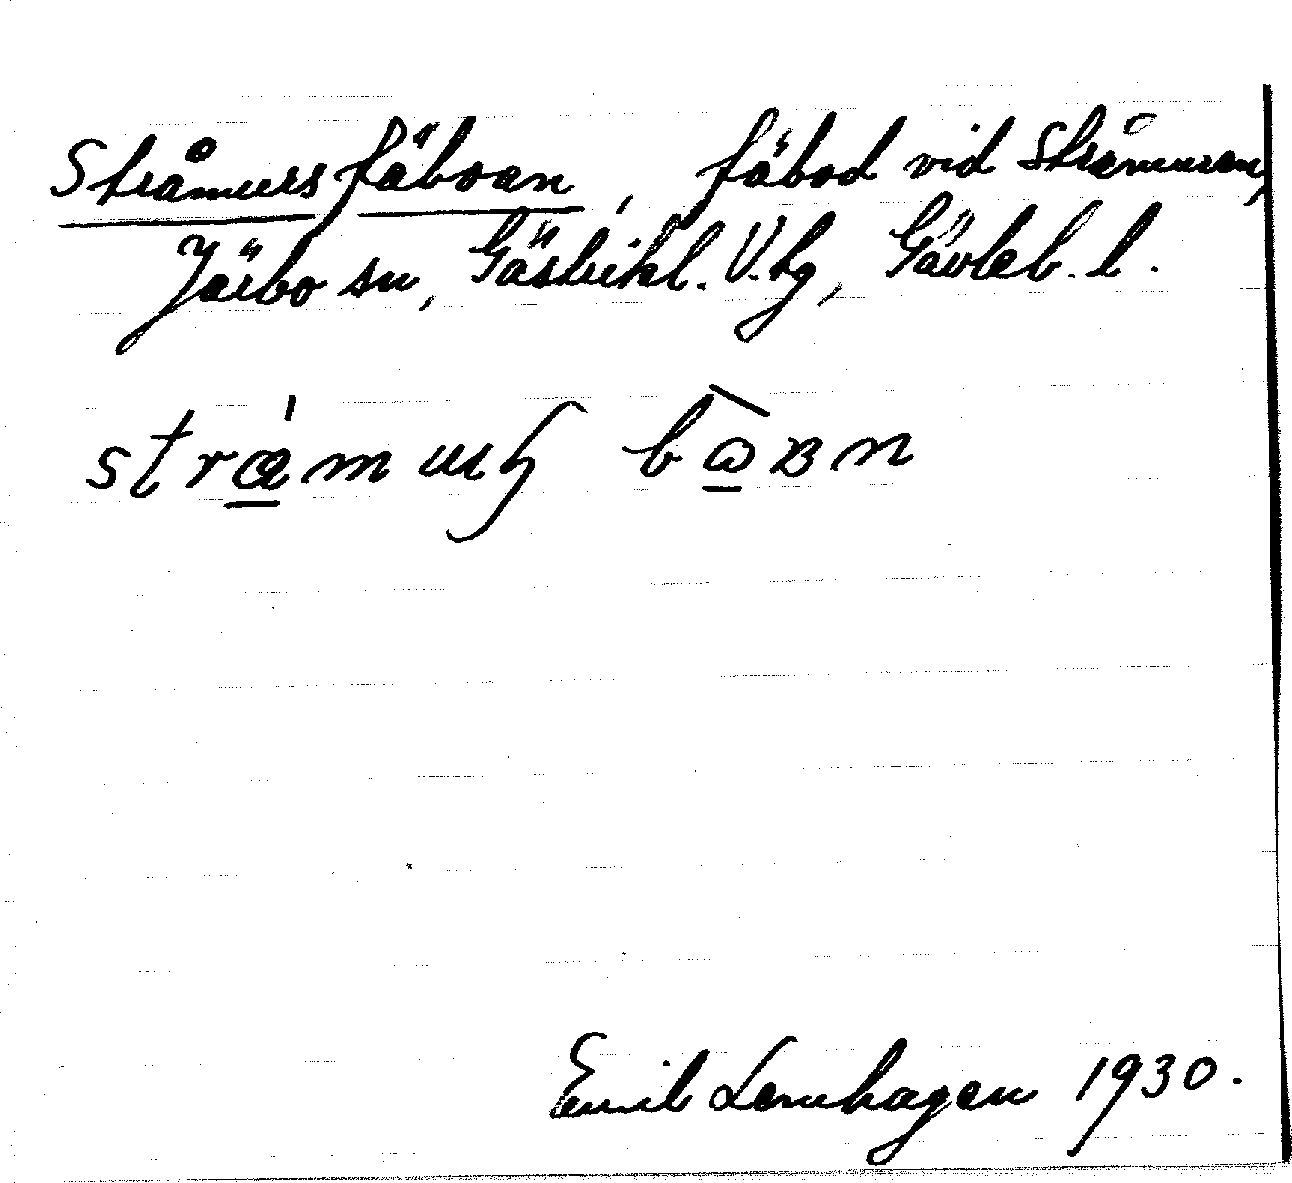 Stråmurs fäboan, fäbod vid Stråmuren,
Järbo sn, Gästrikl. V. tg, Gävleb. l.
strǽmuʂ bωвn
Emil Lennhagen 1930.